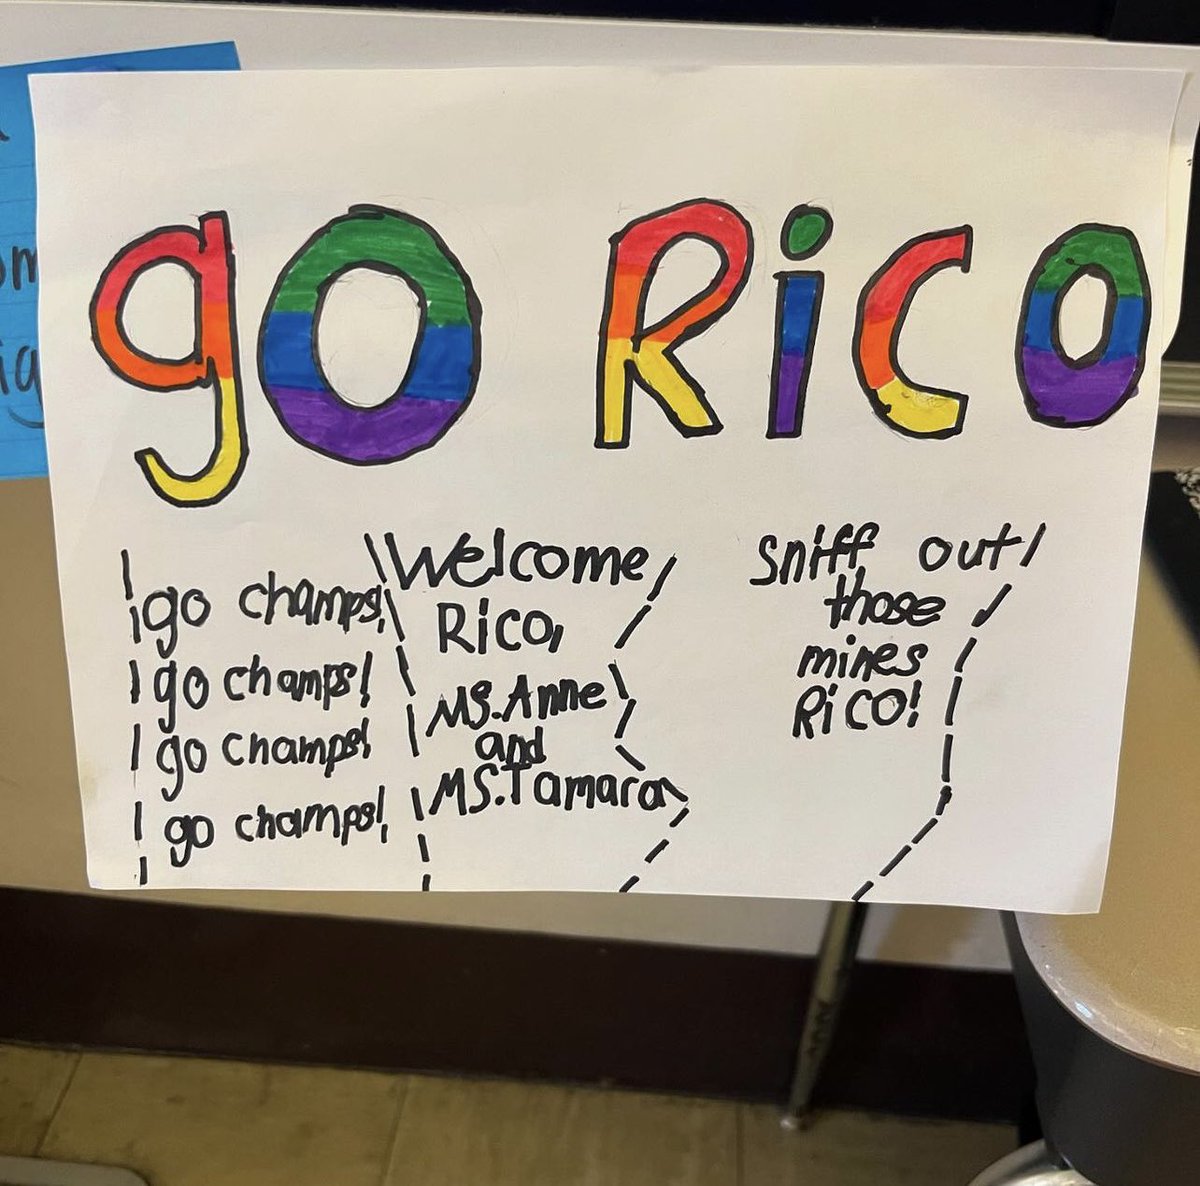 go Rico
go champs!
go champs!
go champs!
go champs!
Welcome
Rico,
MS. Anne
and
MS. Tamara
Sniff out
those
mines
Rico!